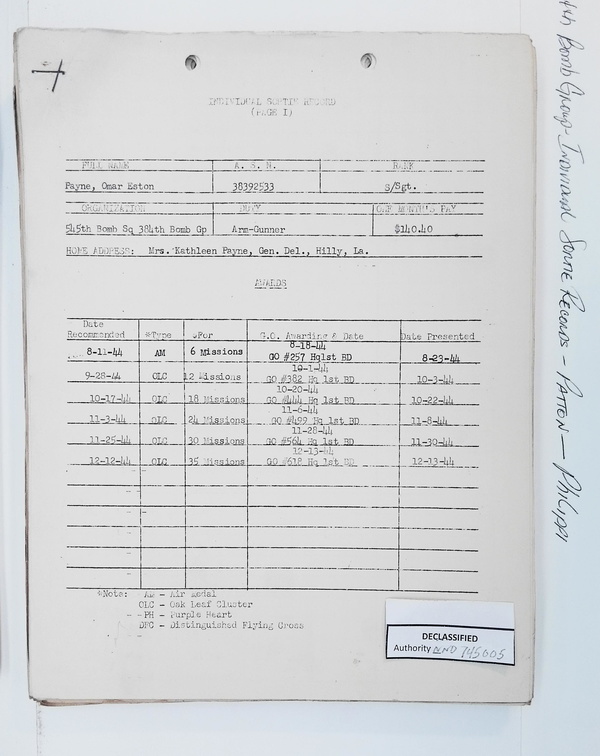 INDIVIDUAL SORTIE RECORD
(PAGE I)
FULL NAME A. S. N. RANK
Payne, Omar Eston 38392533 S/Sgt.
ORGANIZATION DUTY ONE MONTH'S PAY
545th Bomb Sq 384th Bomb Gp Arm-Gunner $140.40
HOME ADDRESS: Mrs. Kathleen Payne, Gen. Del., Hilly, La.
AWARDS
Date
Recommended *Type *For G.O. Awarding & Date Date Presented
8-18-44
8-11-44 AM 6 Missions GO #257 Hq1st BD 8-23-44
10-1-44
9-28-44 OLC 12 Missions GO #382 Hq 1st BD 10-3-44
10-20-44
10-17-44 OLC 18 Missions GO #444 Hq 1st BD 10-22-44
11-6-44
11-3-44 OLC 24 Missions GO #499 Hq 1st BD 11-8-44
11-28-44
11-25-44 OLC 30 Missions GO #564 Hq 1st BD 11-30-44
12-13-44
12-12-44 OLC 35 Missions GO #618 Hq 1st BD 12-13-44
*Note: AM - Air Medal
OLC - Oak Leaf Cluster
PH - Purple Heart
DFC - Distinguished Flying Cross
DECLASSIFIED
Authority NND 745005
4th Bomb Group - Individual Sortie Records - Patton - Philippi